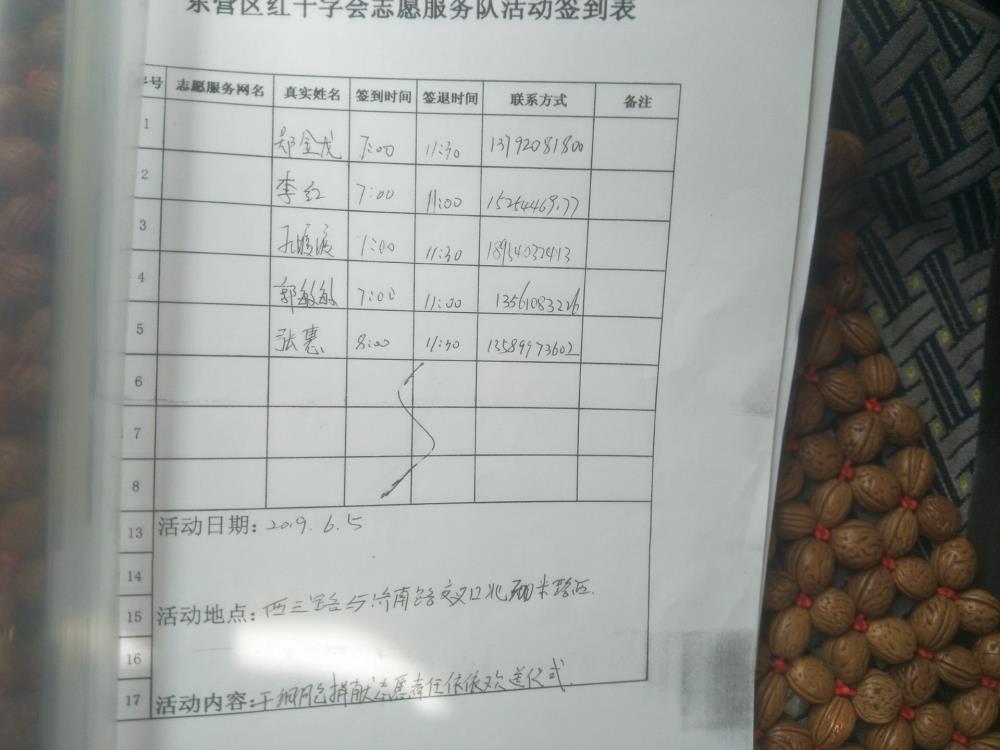 东营区红十字会志愿服务队活动签到表
序号 志愿服务网名 真实姓名 签到时间 签退时间 联系方式 备注
1 郑金龙 7:00 11:30 13792081800
2 李红 7:00 11:00
3 7:00 11:30 18954032413
4 郭敏敏 7:00 11:00 13561083226
5 张惠 8:00 11:30 13589973602
6
7
8
13 活动日期: 2019.6.5
14
15 活动地点: 西三路与济南路交叉口北 米路西.
16
17 活动内容: 干细胞捐献志愿者任依依欢送仪式.